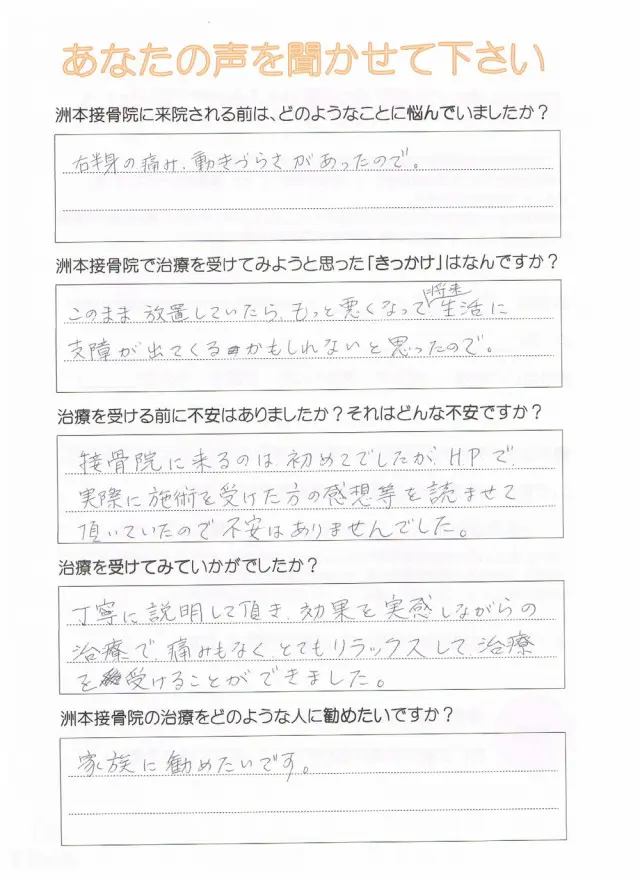 あなたの声を聞かせて下さい
洲本接骨院に来院される前は、どのようなことに悩んでいましたか？
右半身の痛み、動きづらさがあったので。
洲本接骨院で治療を受けてみようと思った「きっかけ」はなんですか？
このまま放置していたら、もっと悪くなって将来生活に
支障が出てくるかもしれないと思ったので。
治療を受ける前に不安はありましたか？それはどんな不安ですか？
接骨院に来るのは初めてでしたが、H.Pで
実際に施術を受けた方の感想等を読ませて
頂いていたので不安はありませんでした。
治療を受けてみていかがでしたか？
丁寧に説明して頂き、効果を実感しながらの
治療で、痛みもなく、とてもリラックスして治療
を受けることができました。
洲本接骨院の治療をどのような人に勧めたいですか？
家族に勧めたいです。